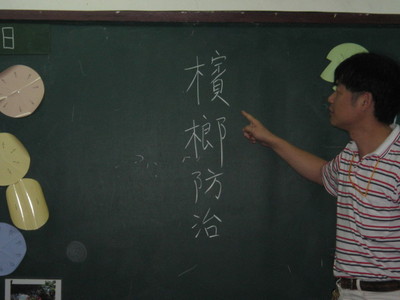 日
檳榔防治